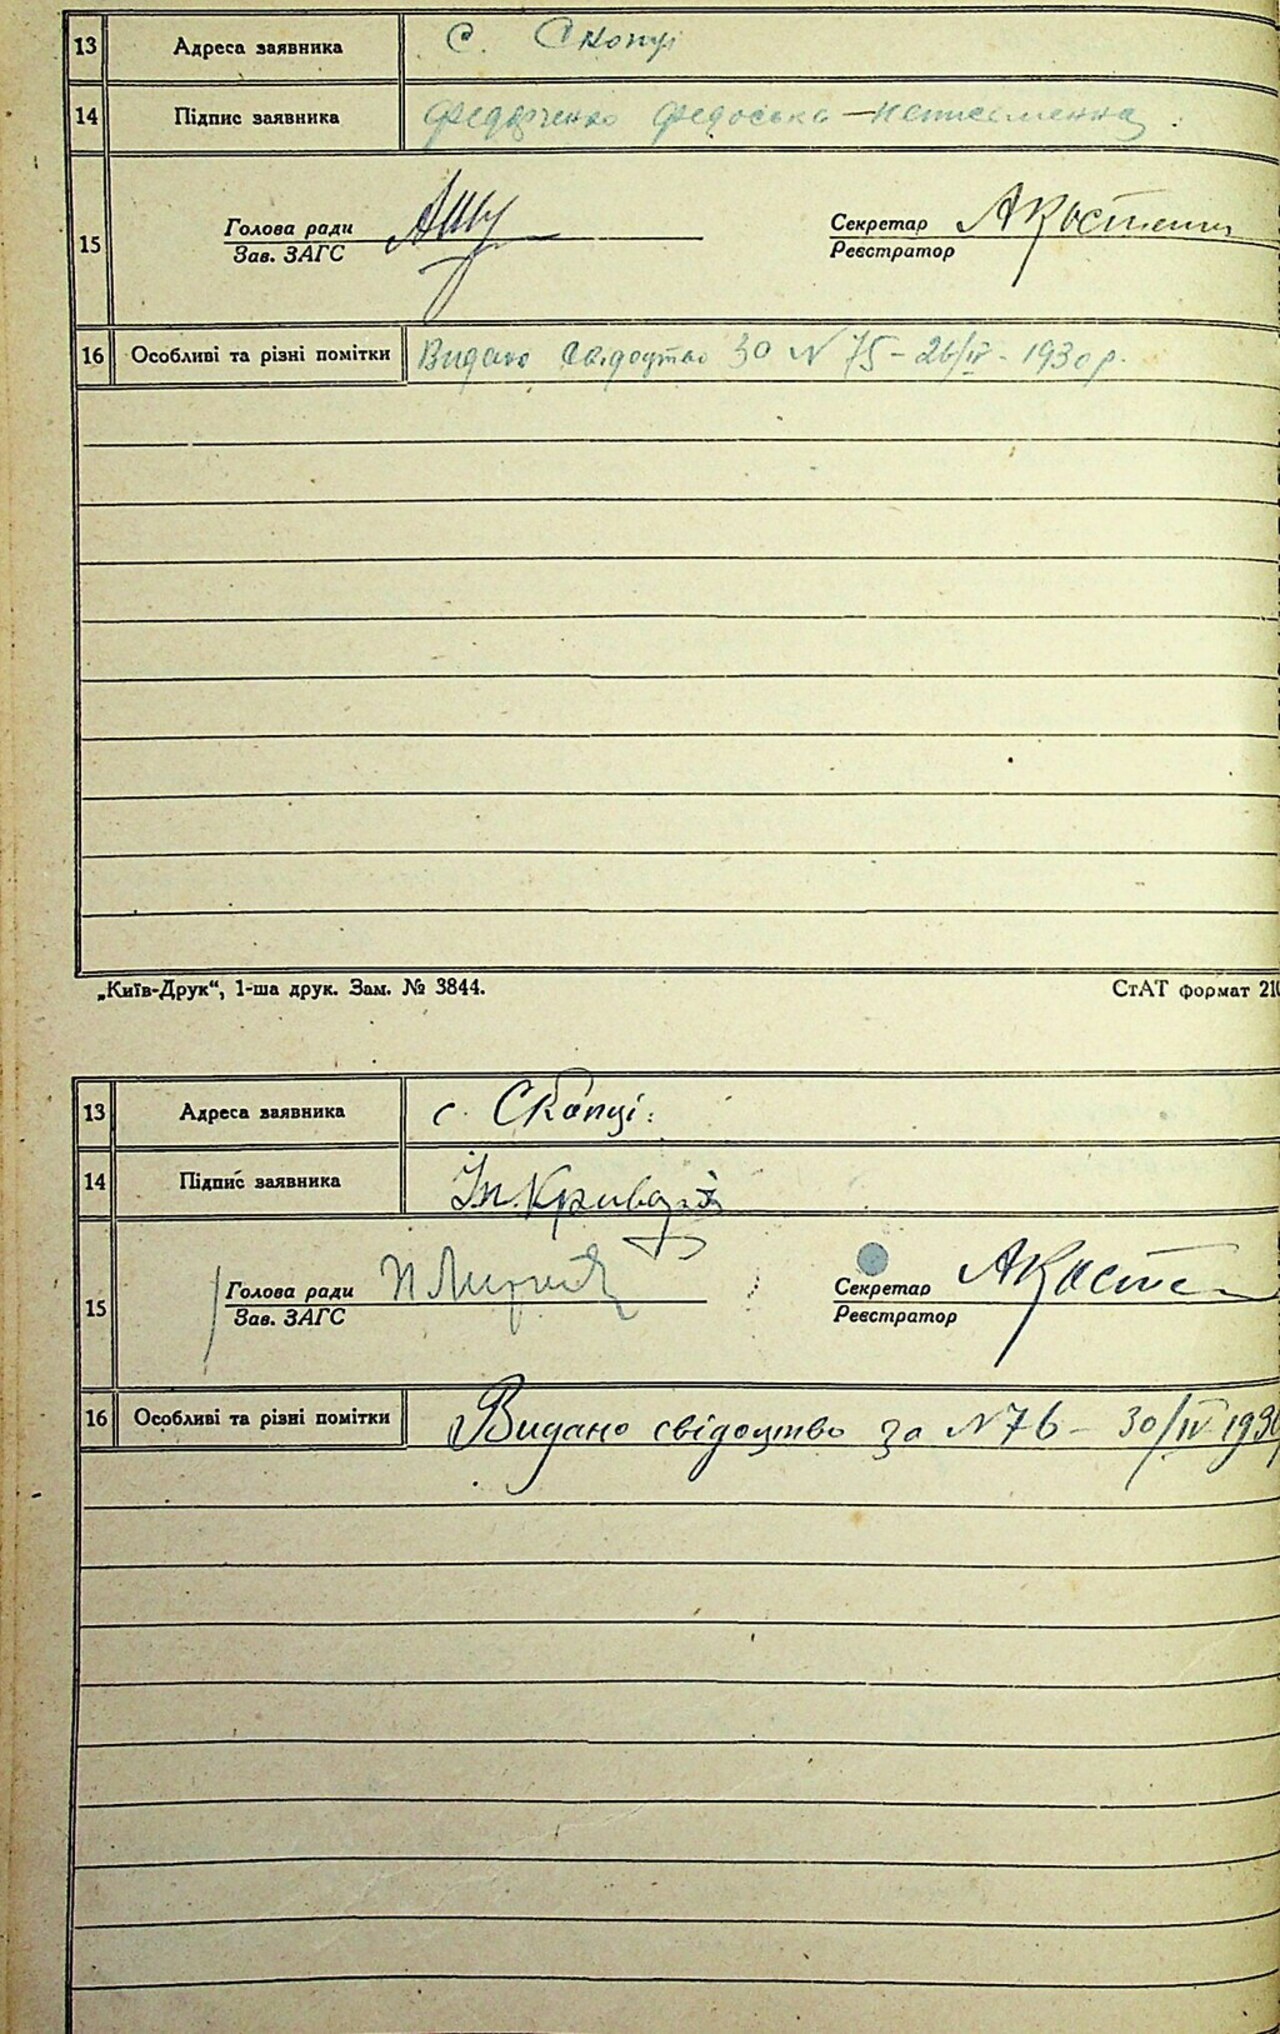 13 Адреса заявника с. Скопці
14 Підпис заявника Федорченко Федоська – неписьменна.
15 Голова ради Секретар АКостенко
Зав. ЗАГС Реєстратор
16 Особливі та різні помітки Видано свідоцтво за N 75 – 26/IV – 1930 р.
„Київ-Друк“, 1-ша друк. Зам. № 3844. СтАТ формат 210
13 Адреса заявника с. Скопці.
14 Підпис заявника
15 Голова ради Секретар
Зав. ЗАГС Реєстратор
16 Особливі та різні помітки Видано свідоцтво за N 76 – 30/IV 1930